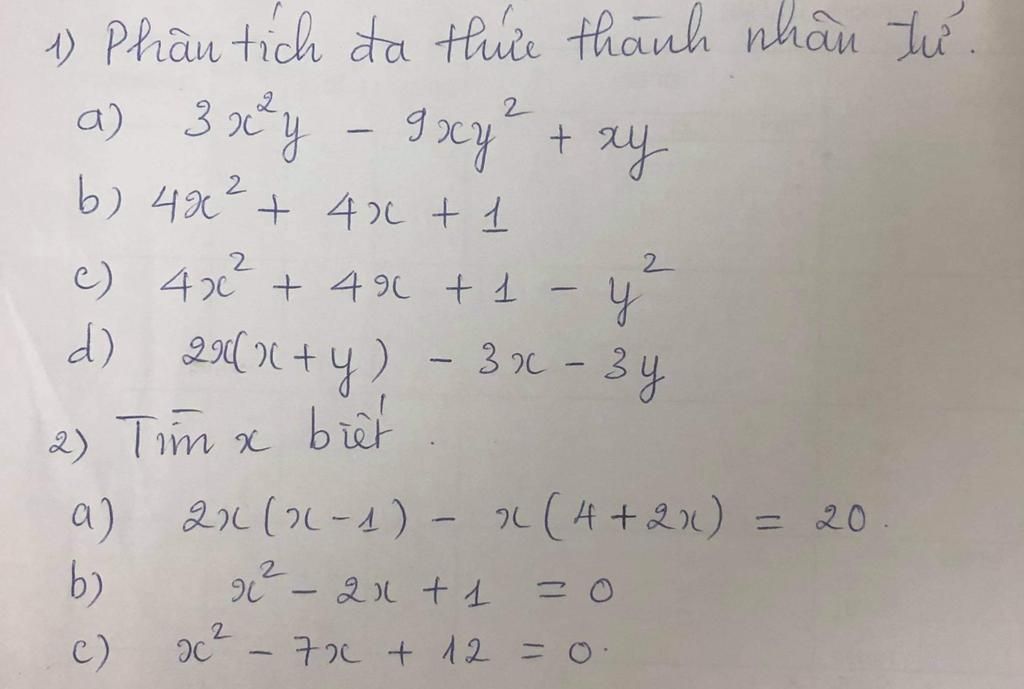 1) Phân tích đa thức thành nhân tử.
a) 3x²y - 9xy² + xy
b) 4x² + 4x + 1
c) 4x² + 4x + 1 - y²
d) 2x(x+y) - 3x - 3y
2) Tìm x biết.
a) 2x(x-1) - x(4+2x) = 20.
b) x² - 2x + 1 = 0
c) x² - 7x + 12 = 0.